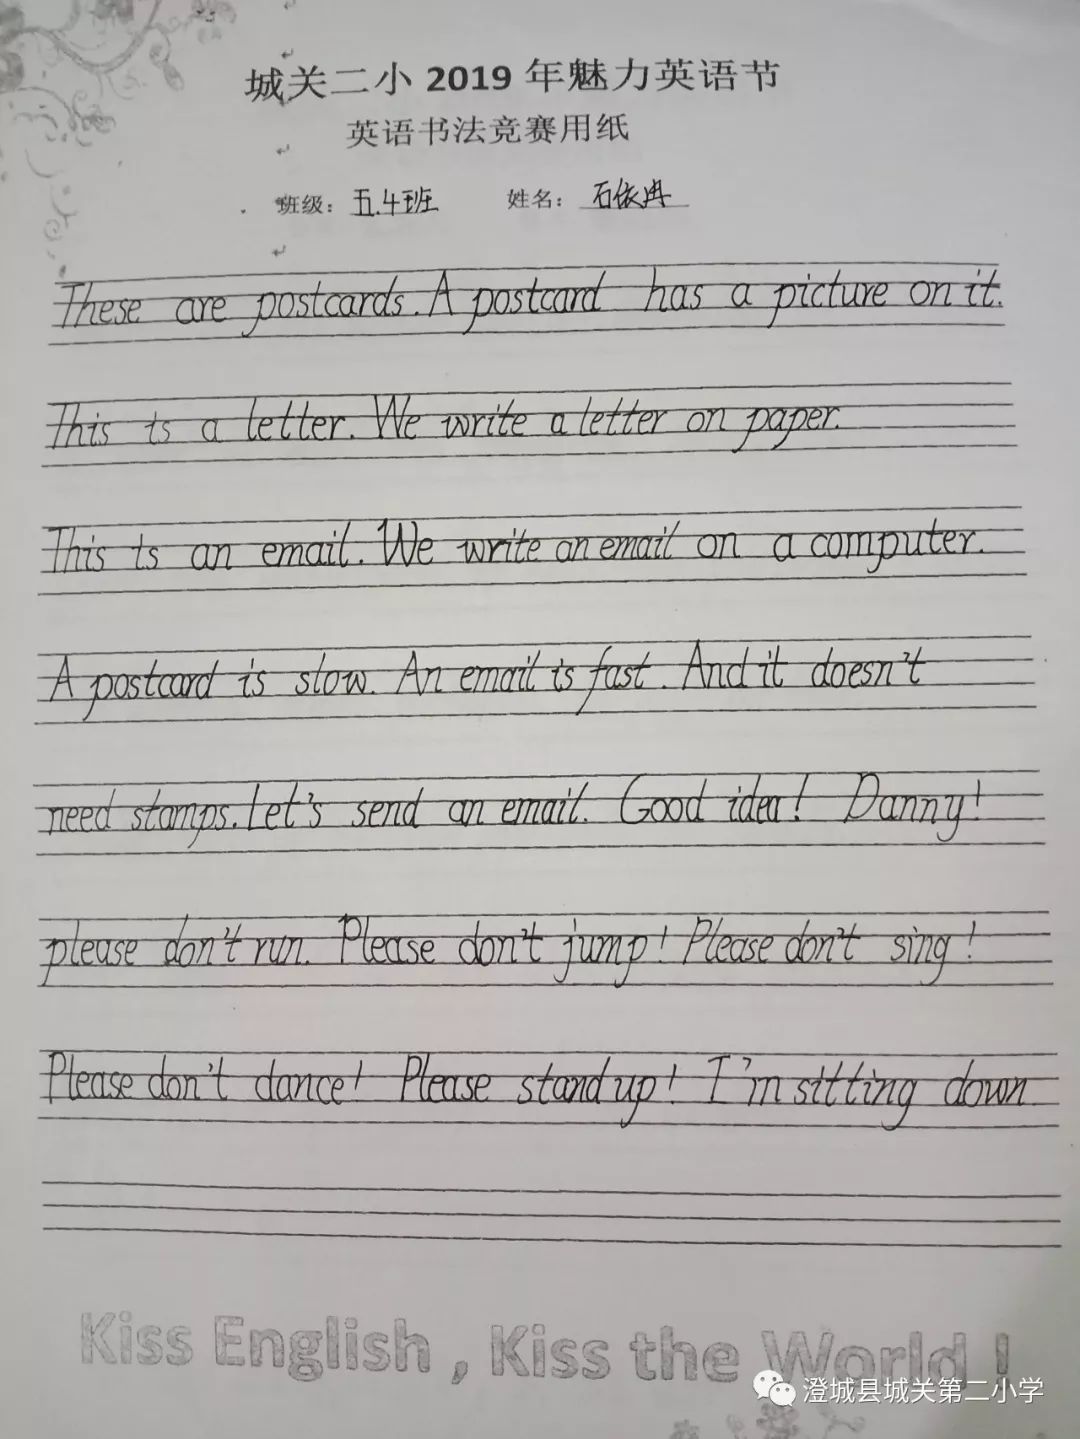 城关二小 2019 年魅力英语节
英语书法竞赛用纸
班级：五.4班 姓名：石依冉
These are postcards. A postcard has a picture on it.
This is a letter. We write a letter on paper.
This is an email. We write an email on a computer.
A postcard is slow. An email is fast. And it doesn't
need stamps. Let's send an email. Good idea! Danny!
please don't run. Please don't jump! Please don't sing!
Please don't dance! Please stand up! I'm sitting down
Kiss English , Kiss the World !
澄城县城关第二小学